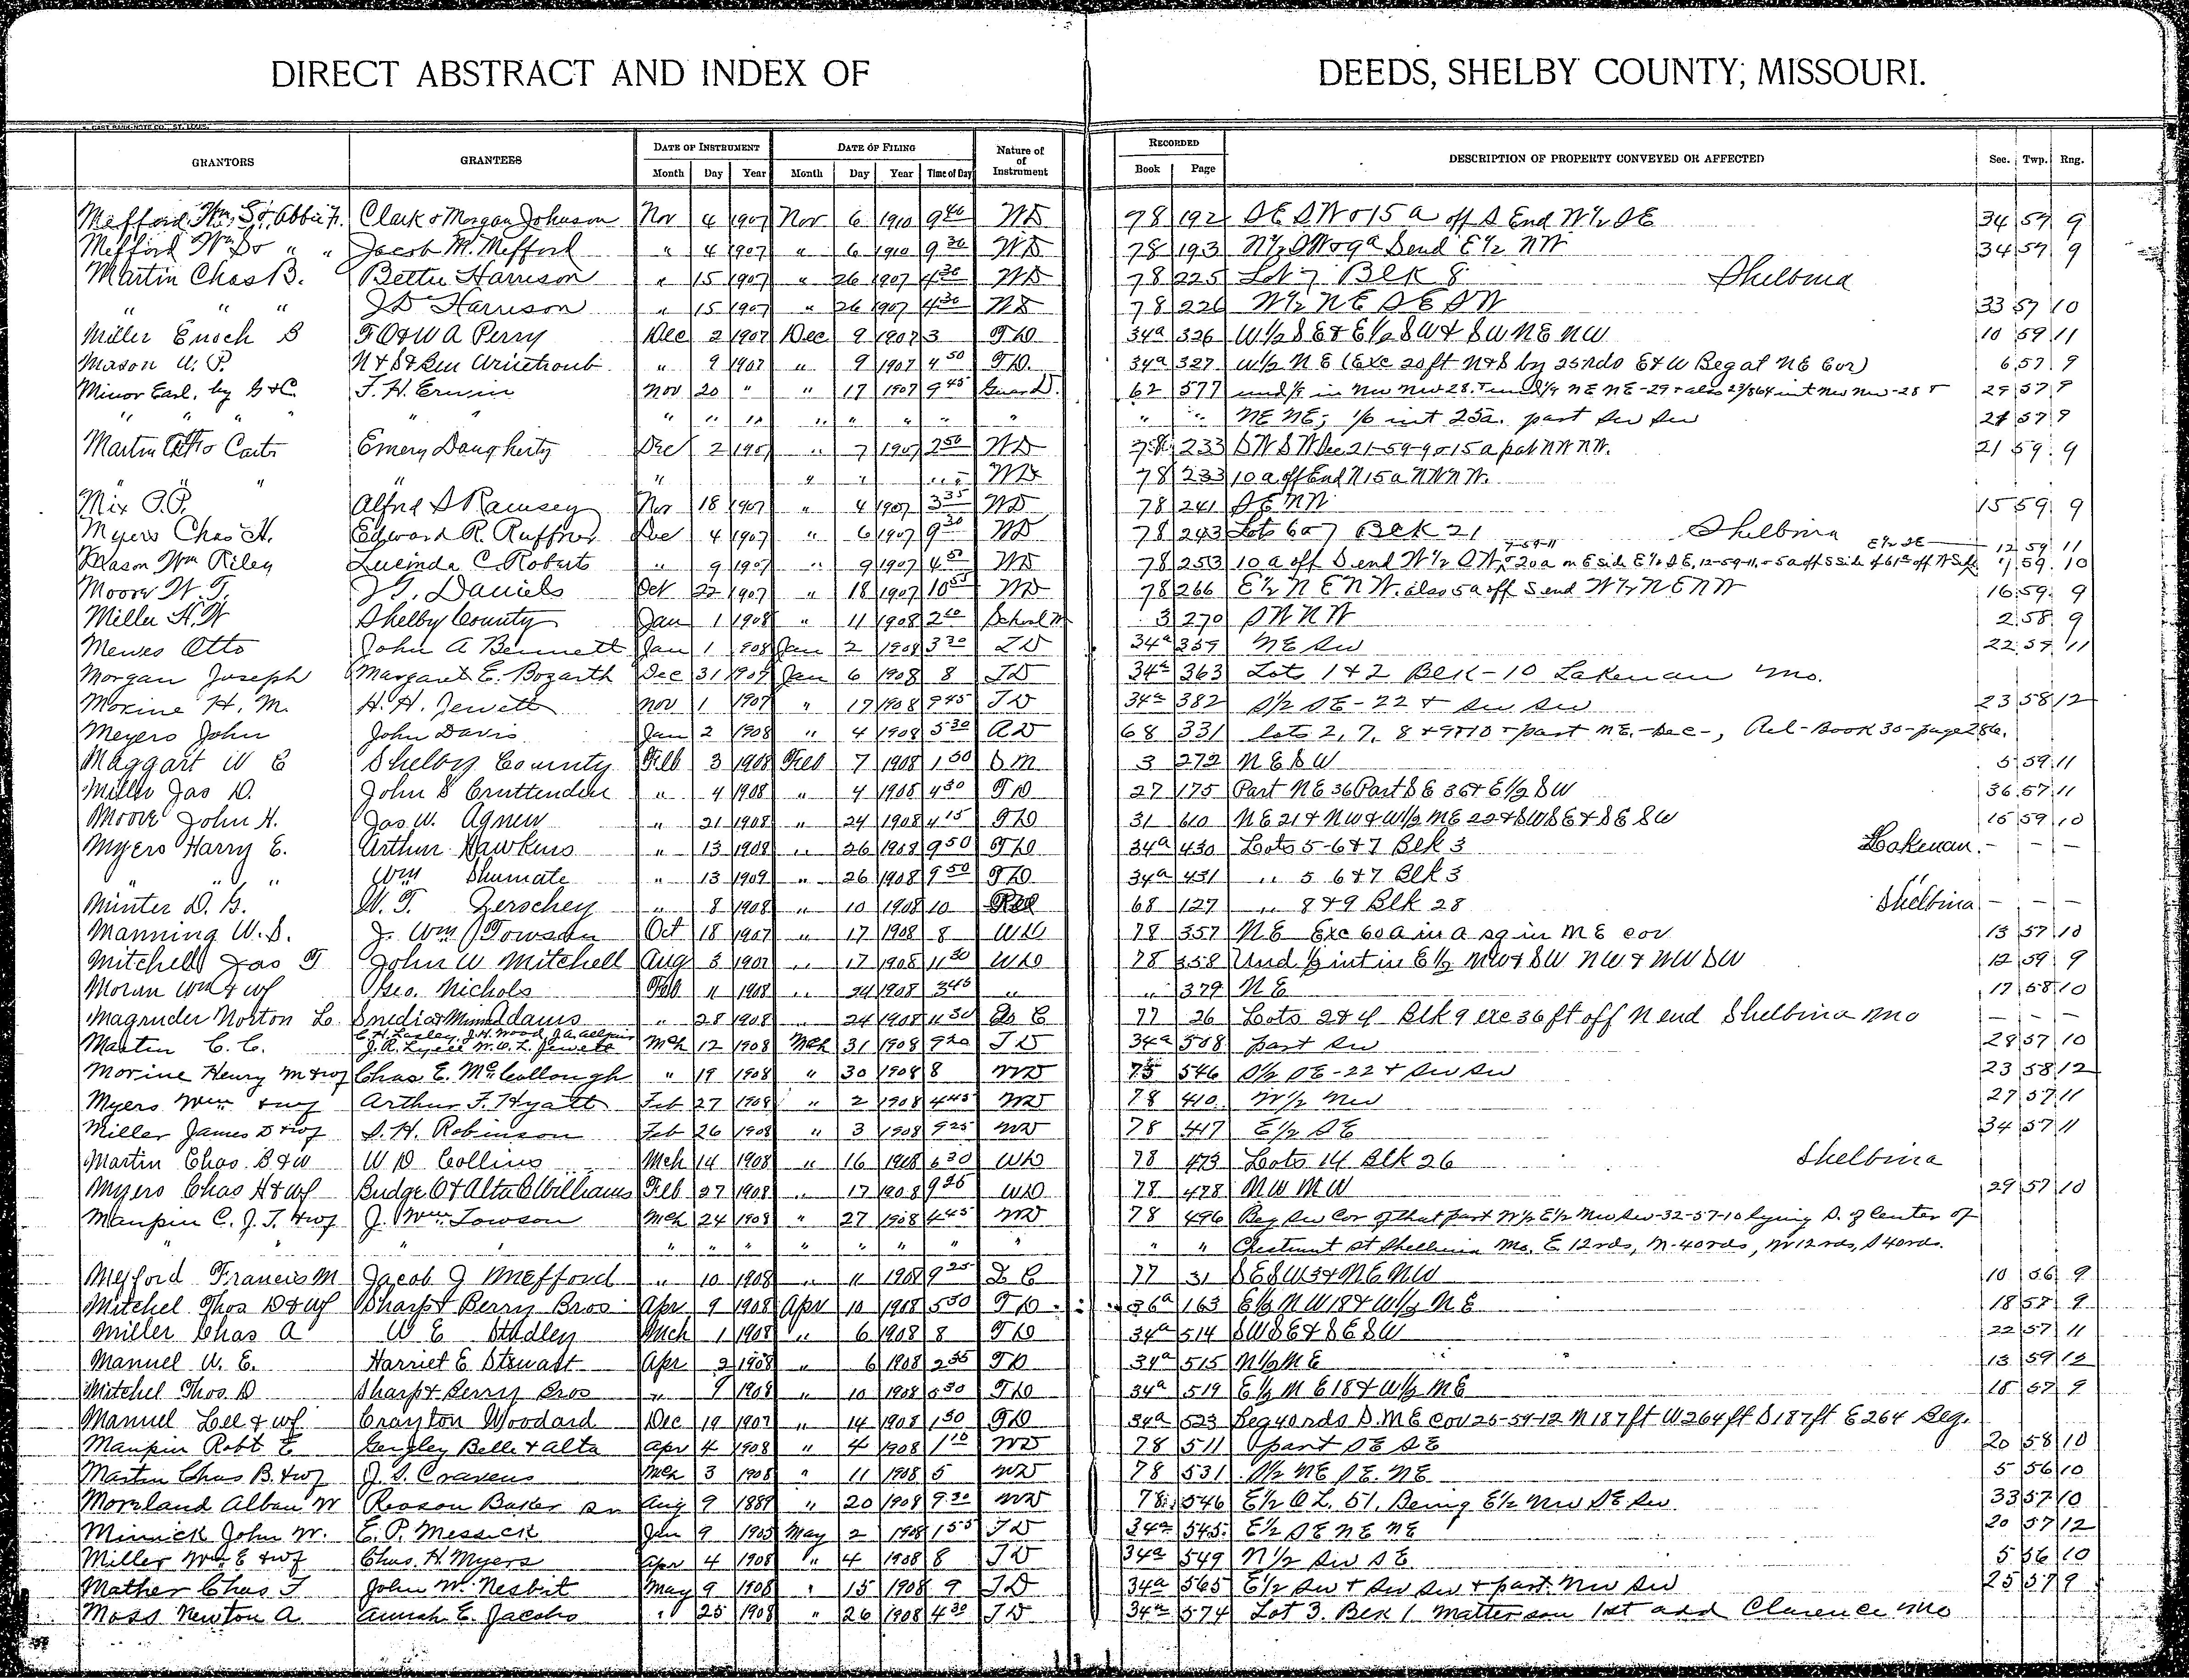 DIRECT ABSTRACT AND INDEX OF DEEDS, SHELBY COUNTY, MISSOURI.
GRANTORS GRANTEES DATE OF INSTRUMENT DATE OF FILING Nature of Instrument RECORDED DESCRIPTION OF PROPERTY CONVEYED OR AFFECTED Sec. Twp. Rng.
Month Day Year Month Day Year Time of Day Book Page
Mefford Wm So, Abbie F. Clark & Morgan Johnson Nov 4 1907 Nov 6 1910 9 40 WD 78 192 SE SW & 15 a off S End W 1/2 SE 34 57 9
Mefford Wm So " " Jacob M. Mefford " 4 1907 " 6 1910 9 36 WD 78 193 34 57 9
Martin Chas B. Bettie Harrison " 15 1907 " 26 1907 4 30 WD 78 225 Lot 7 Blk 8 Shelbina
" " " J D Harrison " 15 1907 " 26 1907 4 30 WD 78 226 W 1/2 NE SE SW 33 57 10
Miller Enoch B F O & W A Perry Dec 2 1907 Dec 9 1907 3 TD 34a 326 W 1/2 SE & E 1/2 SW & SW NE NW 10 59 11
Mason W. P. N & S & Ben " 9 1907 " 9 1907 4 50 TD. 34a 327 W 1/2 NE (Exc 20 ft N & S by 25 rds E & W Beg at NE Cor) 6 57 9
Minor Earl, by G & C. J. H. Erwin Nov 20 " " 17 1907 9 45 Guar D. 62 577 29 57 9
" " " " " " " " " " " " " " " " NE NE; 1/6 int 25a. part SW SW 57 9
Martin Otho Carter Emery Daugherty Dec 2 1907 " 7 1907 2 50 WD 78 233 SW SW Sec 21-59-9 & 15 a NW NW. 21 59 9
" " " " " " " WD 78 233 10 a off End N 15 a NW NW.
Mix P.P. Alfred S Ramsey Nov 18 1907 " 4 1907 3 35 WD 78 241 SE NW 15 59 9
Myers Chas H. Edward R. Ruffner Dec 4 1907 " 6 1907 9 30 WD 78 243 Lots 6 & 7 Blk 21 Shelbina
Mason Wm Riley Lucinda C. Roberts " 9 1907 " 9 1907 4 WD 78 253 10 a off S end W 1/2 SW 7-59-11 20 a on E side E 1/2 SE, 12-59-11 E 1/2 SE 12 59 11
7 59 10
Moore W. T. J G. Daniels Oct 22 1907 " 18 1907 10 55 WD 78 266 E 1/2 NE NW. also 5 a off S end W 1/2 NE NW 16 59 9
Miller H. W Shelby County Jan 1 1908 " 11 1908 2 School M 3 270 SW NW 2 58 9
Mewes Otto John A Bennett Jan 1 1908 Jan 2 1908 3 30 TD 34a 359 NE SW 22 59 11
Morgan Joseph Margaret E. Bozarth Dec 31 1907 Jan 6 1908 8 TD 34a 363 Lots 1 & 2 Blk-10 Lakenan Mo.
Morine H. M. H. H. Jewett Nov 1 1907 " 17 1908 9 45 TD 34a 382 S 1/2 SE-22 & SW SW 23 58 12
Meyers John John Davis Jan 2 1908 " 4 1908 5 30 68 331 Lots 2, 7, 8 & 9 & 10 & part NE.-Sec-, Rel-Book 30-page 286.
Maggart W E Shelby County Feb 3 1908 Feb 7 1908 1 50 S M 3 272 NE SW 5 59 11
Miller Jas D. John S Cruttenden " 4 1908 " 4 1908 4 30 TD 27 175 Part NE 36 Part SE 36 & E 1/2 SW 36 57 11
Moore John H. Jas W. Agnew " 21 1908 " 24 1908 4 15 TD 31 610 NE 21 & NW & W 1/2 NE 22 & SW SE & SE SW 15 59 10
Myers Harry E. Arthur Hawkins " 13 1908 " 26 1908 9 50 TD 34a 430 Lots 5-6 & 7 Blk 3 Lakenan - - -
" " " Wm Shumate " 13 1909 " 26 1908 9 50 TD 34a 431 " 5 6 & 7 Blk 3 "
Minter D. G. W. T. Zerschey " 8 1908 " 10 1908 10 Rel 68 127 " 8 & 9 Blk 28 Shelbina - - -
Manning W. S. J. Wm Towson Oct 18 1907 " 17 1908 8 WD 78 357 NE Exc 60 a in a sq in NE cor 13 57 10
Mitchell Jas T John W Mitchell Aug 3 1907 " 17 1908 11 30 WD 78 358 Und 1/2 int in E 1/2 NW & SW NW & NW SW 12 59 9
Moran Wm & wf Geo. Nichols Feb 11 1908 " 24 1908 3 45 " " 379 NE 17 58 10
Magruder Norton L. Adams " 28 1908 " 24 1908 11 30 77 26 Lots 2 & 4 Blk 9 exc 36 ft off N end Shelbina Mo - - -
Martin C. C. Mch 12 1908 Mch 31 1908 9 20 TD 34a 508 part SW 28 57 10
Morine Henry M & wf Chas E. McCollough " 19 1908 " 30 1908 8 WD 75 546 S 1/2 SE-22 & SW SW 23 58 12
Myers Wm & wf Arthur F. Hyatt Feb 27 1908 " 2 1908 4 45 WD 78 410 W 1/2 NW 27 57 11
Miller James D & wf S. H. Robinson Feb 26 1908 " 3 1908 9 25 WD 78 417 E 1/2 SE 34 57 11
Martin Chas. B & w W D Collins Mch 14 1908 " 16 1908 6 30 WD 78 473 Lots 14 Blk 26 Shelbina
Myers Chas H & wf Budge O & Alta B Williams Feb 27 1908 " 17 1908 9 25 WD 78 478 NW NW 29 57 10
Maupin C. J. T. & wf J. Wm Towson Mch 24 1908 " 27 1908 4 45 WD 78 496 Beg SW Cor of that part W 1/2 E 1/2 NW SW-32-57-10 lying S. of Center of
" " " " " " " " " " " " " " Chestnut St Shelbina Mo. E 12 rds, N 40 rds, W 12 rds, S 40 rds.
Mefford Francis M Jacob J Mefford " 10 1908 " 11 1908 9 25 77 31 SE SW 3 & NE NW 10 56 9
Mitchel Thos D & wf Sharp & Berry Bros Apr 9 1908 Apr 10 1908 5 30 TD 36a 163 E 1/2 NW 18 & W 1/2 NE 18 57 9
Miller Chas A W E Studley Mch 1 1908 " 6 1908 8 TD 34a 514 SW SE & SE SW 22 57 11
Manuel W. E. Harriet E. Stewart Apr 2 1908 " 6 1908 2 35 TD 34a 515 N 1/2 NE 13 59 12
Mitchel Thos. D Sharp & Berry Bros " 9 1908 " 10 1908 5 30 TD 34a 519 E 1/2 NE 18 & W 1/2 NE 18 57 9
Manuel Lee & wf Crayton Woodard Dec 19 1907 " 14 1908 1 30 TD 34a 523 Beg 40 rds S. NE cor 26-59-12 N 187 ft W 264 ft S 187 ft E 264 Beg.
Maupin Robt E. Belle & Alta Apr 4 1908 " 4 1908 1 10 WD 78 511 part SE SE 20 58 10
Martin Chas B. & wf J. S. Cravens Mch 3 1908 " 11 1908 5 WD 78 531 S 1/2 NE SE. NE 5 56 10
Moreland Alban W Reason Baker Sr Aug 9 1889 " 20 1908 9 30 WD 78 546 E 1/2 O L. 51. Being E 1/2 NW SE SW 33 57 10
Minnick John W. E. P. Messick Jan 9 1905 May 2 1908 1 55 TD 34a 545 E 1/2 SE NE NE 20 57 12
Miller Wm E & wf Chas. H. Myers Apr 4 1908 " 4 1908 8 TD 34a 549 N 1/2 SW SE 5 56 10
Mather Chas T John W. Nesbit May 9 1908 " 15 1908 9 TD 34a 565 E 1/2 SW & SW SW & part NW SW 25 57 9
Moss Newton A. E. Jacobs " 25 1908 " 26 1908 4 30 TD 34a 574 Lot 3. Blk 1 Matterson 1st add Clarence Mo